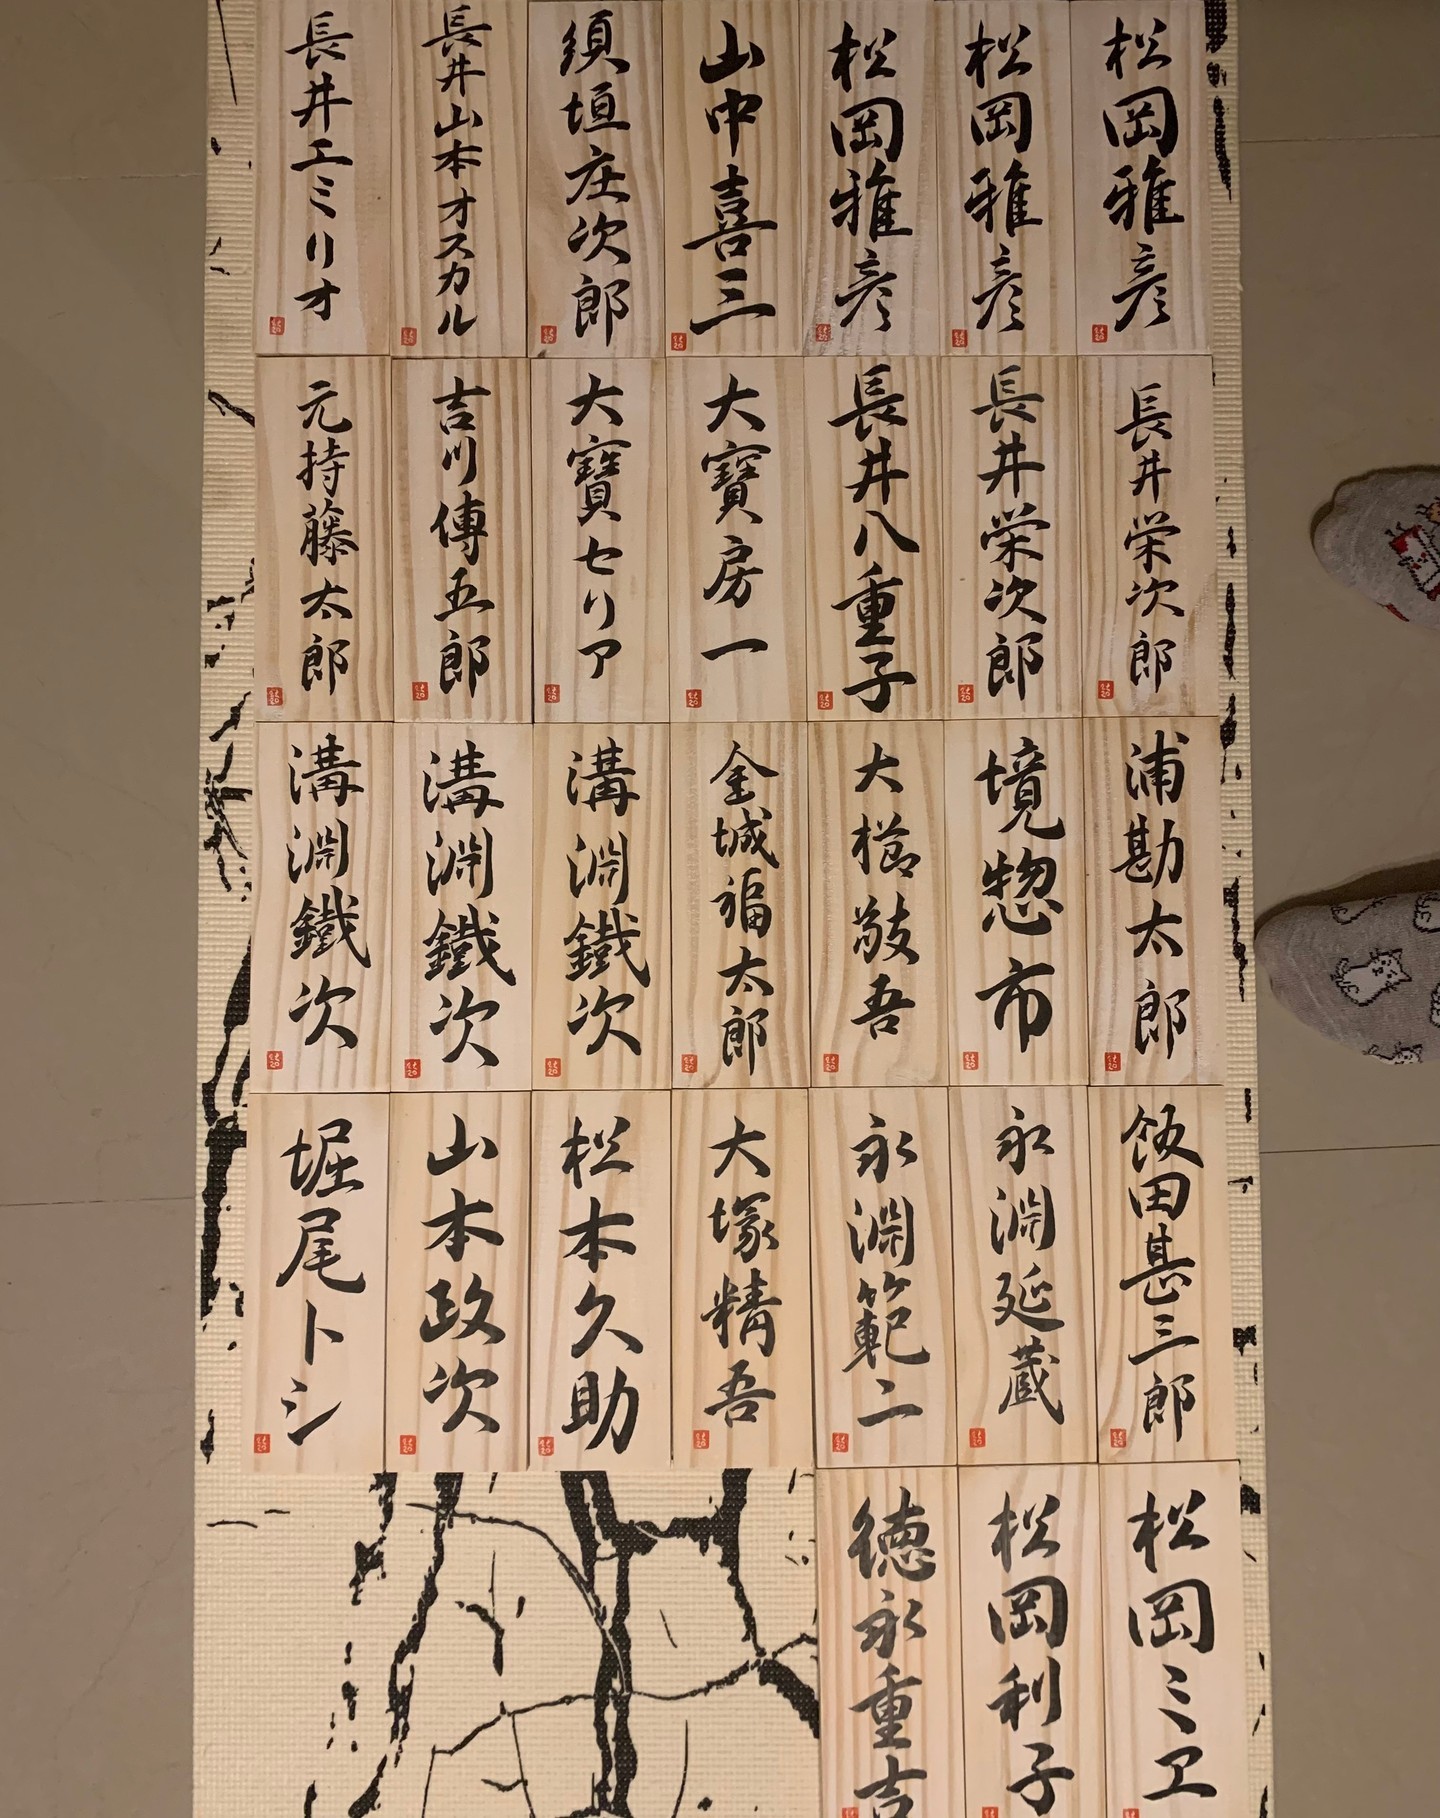 松岡雅彦
松岡雅彦
松岡雅彦
山中喜三
須垣庄次郎
長井山本オスカル
長井エミリオ
長井栄次郎
長井栄次郎
長井八重子
大寶房一
大寶セリア
吉川傳五郎
元持藤太郎
浦勘太郎
境惣市
大櫛敬吾
金城福太郎
溝渕鐵次
溝渕鐵次
溝渕鐵次
飯田甚三郎
永渕延蔵
永渕範二
大塚精吾
松本久助
山本政次
堀尾トシ
松岡ミエ
松岡利子
徳永重吉